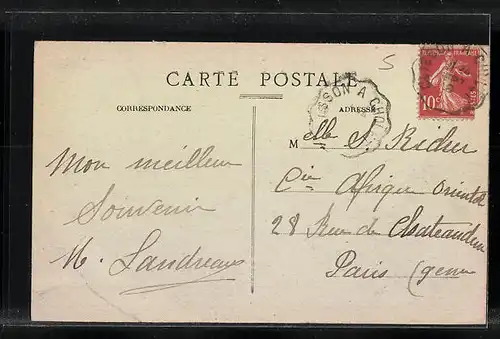 5
CARTE POSTALE
CORRESPONDANCE
ADRESSE
SSON A CHO
10
Mon meilleur
Souvenir
M. Landreau
Melle S. Richer
Cie Afrique Orientale
28 Rue de Chateaudun
Paris (9eme